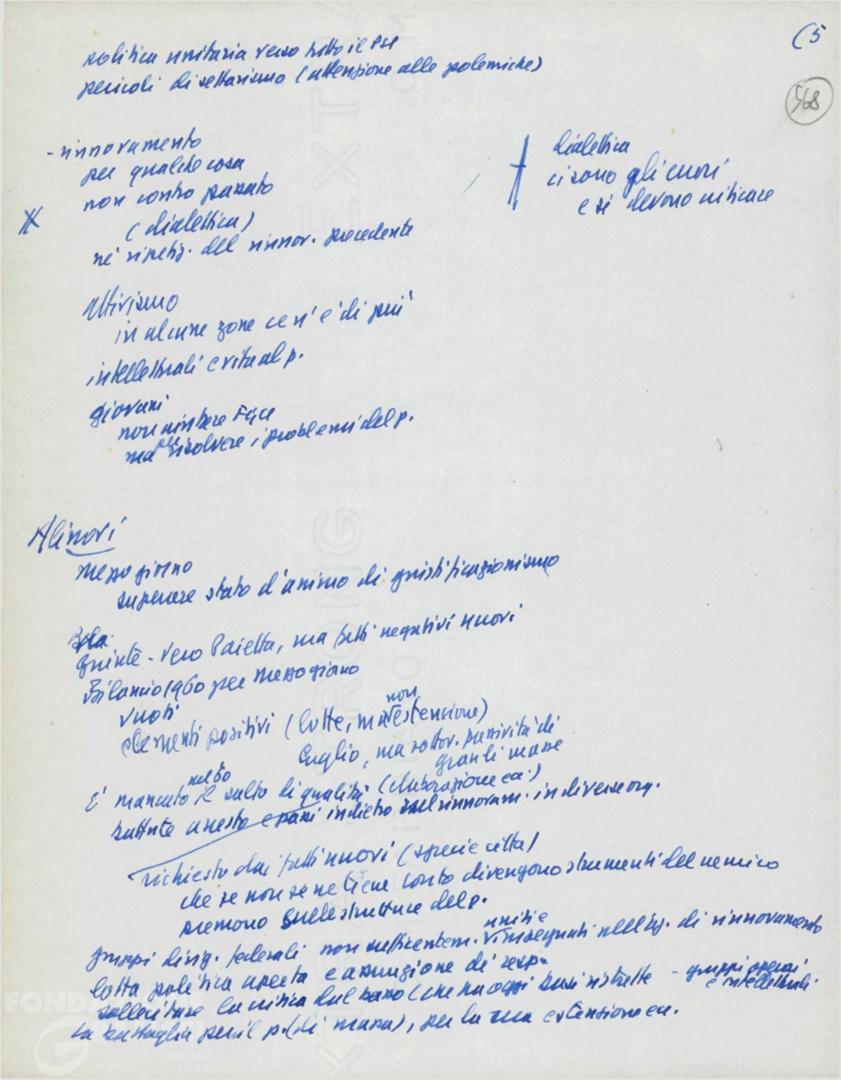 (5
568
politica unitaria verso tutto il PSI
pericoli di settarismo (attenzione alle polemiche)
- rinnovamento
per qualche cosa
non contro passato
(dialettica)
né ripetiz. del rinnov. precedente
dialettica
ci sono gli errori
e si devono criticare
Attivismo
in alcune zone ce n'è di più
intellettuali e vita al p.
giovani
non
ma per risolvere i problemi del p.
Alinovi
Mezzogiorno
superare stato d'animo di giustificazionismo
- vero Paietta, ma fatti negativi nuovi
Bilancio 1960 per Mezzogiorno
vuoti
elementi positivi (lotte, ma non estensione)
luglio, ma sottov. passività di
grandi masse
È mancato il salto di qualità (elaborazione ecc.)
passi indietro sul rinnovam. in diverse org.
richiesto dai fatti nuovi (specie città)
che se non se ne tiene conto divengono strumenti del nemico
premono sulle strutture del p.
gruppi dirig. federali non sufficientem. uniti e impegnati nell'az. di rinnovamento
lotta politica aperta e assunzione di resp.
sollecitare la critica dal basso (che ha oggi basi ristrette - gruppi operai
e intellettuali.
La battaglia per il p. (di massa), per la sua estensione ecc.
FONDAZIONE